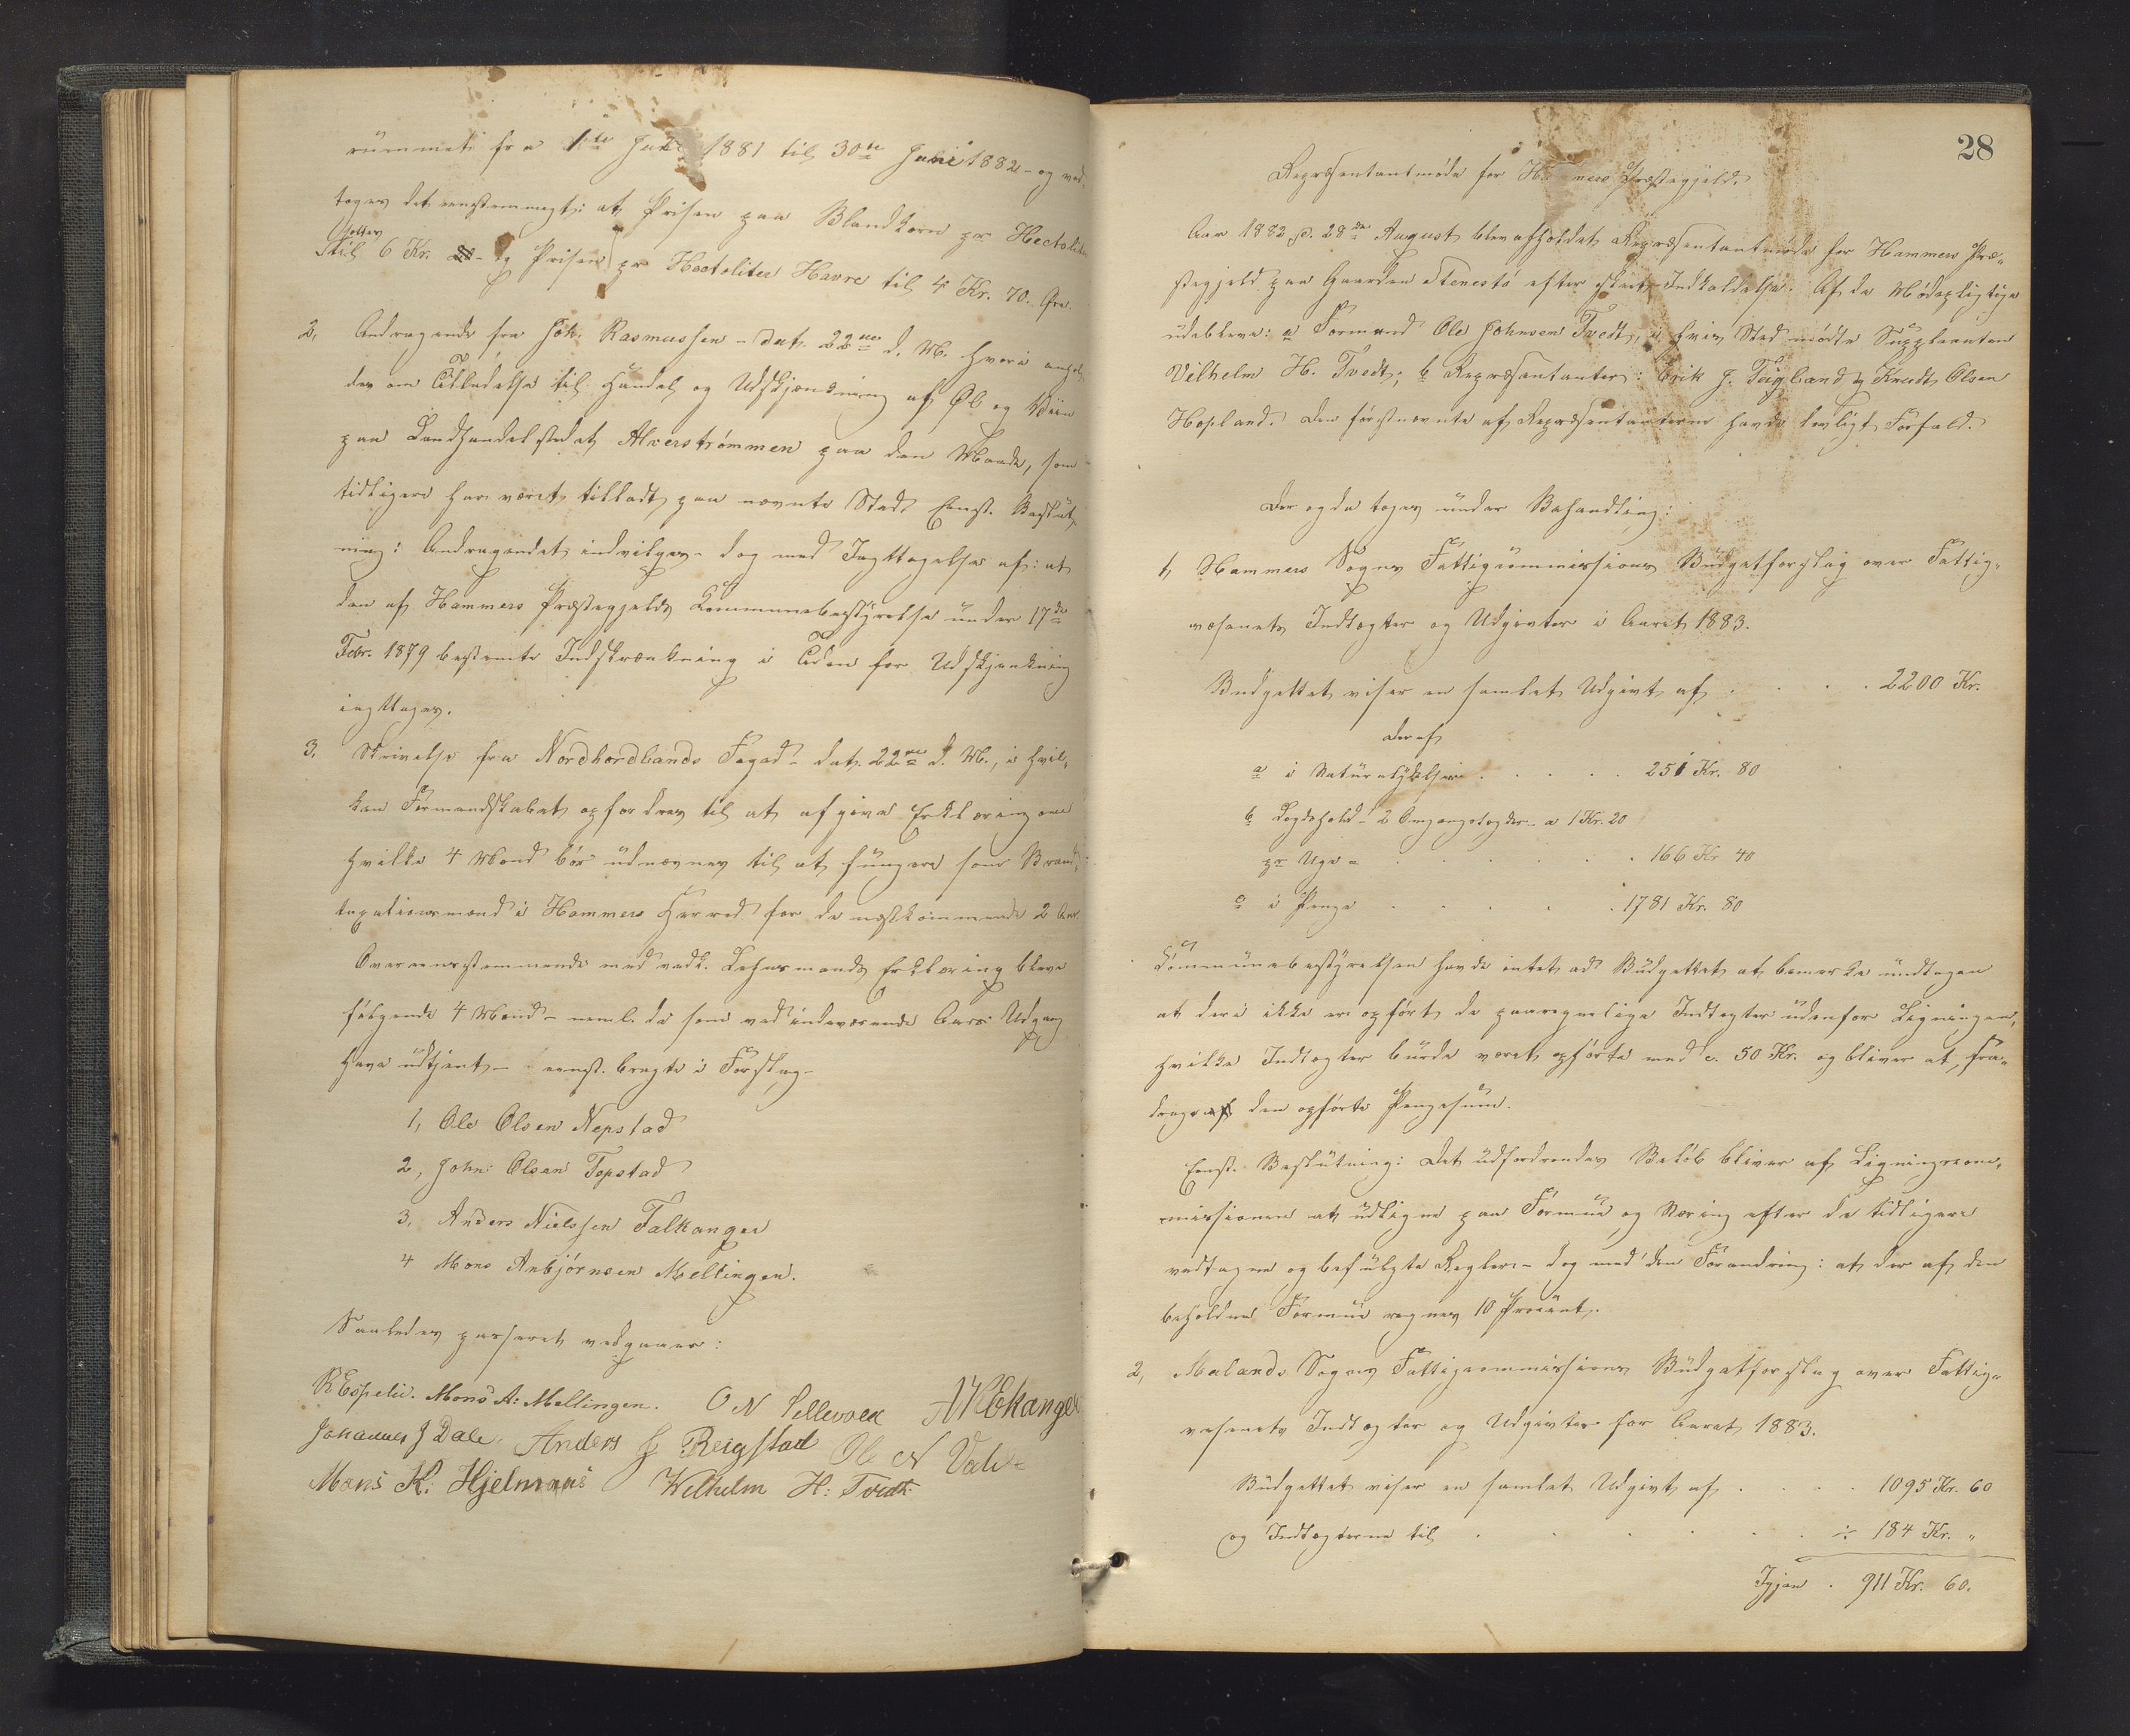 rümmet fra 1ste Juli 1881 til 30te Juni 1882 - og ved-
toges det eenstemmigt: at Prisen paa Blandkorn pr Hectoliter
sættes
til 6 Kr. og Prisen pr Hectoliter Havre til 4 Kr. 70 Øre.
2, Andragende fra Joh. Rasmussen - dat. 22de d. M. hvori anhol-
des om Tilladelse til Handel og Udskjænkning af Øl og Viin
paa Landhandelstedet Alverstrømmen paa den Maade, som
tidligere har været tilladt paa nævnte Sted. Eenst. Beslut-
ning: Andragendet indvilges - dog med Iagttagelse af: at
den af Hammers Præstegjelds Kommunebestyrelse under 17de
Febr. 1879 bestemte Indskrænkning i Tiden for Udskjænkning
iagttages.
3. Skrivelse fra Nordhordlands Foged - dat. 22de d. M., i hvil-
ken Formandskabet opfordres til at afgive Erklæring om
hvilke 4 Mænd bør udnævnes til at fungere som Brand-
taxationsmænd i Hammers Herred for de næstkommende 2 Aar.
Overeensstemmende med vedk. Lehnsmands Erklæring bleve
følgende 4 Mænd - neml. de som ved indeværende Aars Udgang
have udtjent - eenst. bragte i Forslag -
1, Ole Olsen Nepstad
2, John Olsen Topstad
3, Anders Nielssen Falkanger
4 Mons Anbjørnsen Mellingen.
Saaledes passeret vedgaaes:
R Espelid. Mons A: Mellingen. O N Sellevold A K Ekanger
Johannes J Dale. Anders J Reigstad Ole N Vale
Mons K. Hjelmaas Wilhelm H: Tvedt
28
Repræsentantmøde for Hammers Præstegjeld.
Aar 1882 d. 28de August blev afholdet Repræsentantmøde for Hammers Præ-
stegjeld paa Gaarden Stenestø efter skeet Indkaldelse. Af de Mødepligtige
udebleve: a Formand Ole Johnsen Tvedt, i hvis Sted mødte Suppleanten
Vilhelm H. Tvedt; b Repræsentanter: Erik J. Teigland og Knudt Olsen
Hopland. Den førstnævnte af Repræsentanterne havde lovligt Forfald.
Der og da toges under Behandling:
1, Hammers Sogns Fattigcommissions Budgetforslag over Fattig-
væsenets Indtægter og Udgivter i Aaret 1883.
Budgettet viser en samlet Udgivt af . . . . 2200 Kr.
Deraf
a i Naturalydelser . . . . . 251 Kr. 80
b Lægdehold - 2 Omgangslægder - a 1 Kr. 20
pr Uge = . . . . . . 166 Kr 40
c i Penge . . . . . 1781 Kr. 80
Kommunebestyrelsen havde intet ad Budgettet at bemærke undtagen
at deri ikke er opført de paaregnelige Indtægter udenfor Ligningen,
hvilke Indtægter burde været opførte med c. 50 Kr. og bliver at fra-
drage af den opførte Pengesum.
Eenst. Beslutning: Det udfordrendes Beløb bliver af Ligningscom-
missionen at udligne paa Formue og Næring efter de tidligere
vedtagne og befulgte Regler - dog med den Forandring: at der af den
beholdne Formue regnes 10 Procent.
2, Mælands Sogns Fattigcommissions Budgetforslag over Fattig-
væsenets Indtægter og Udgivter for Aaret 1883.
Budgettet viser en samlet Udgivt af . . . . 1095 Kr. 60
og Indtægterne til . . . . . . ÷ 184 Kr. "
Igjen . 911 Kr. 60.